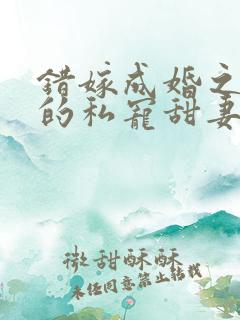 错嫁成婚之
的私宠甜妻
微甜酥酥
未经同意禁止转载